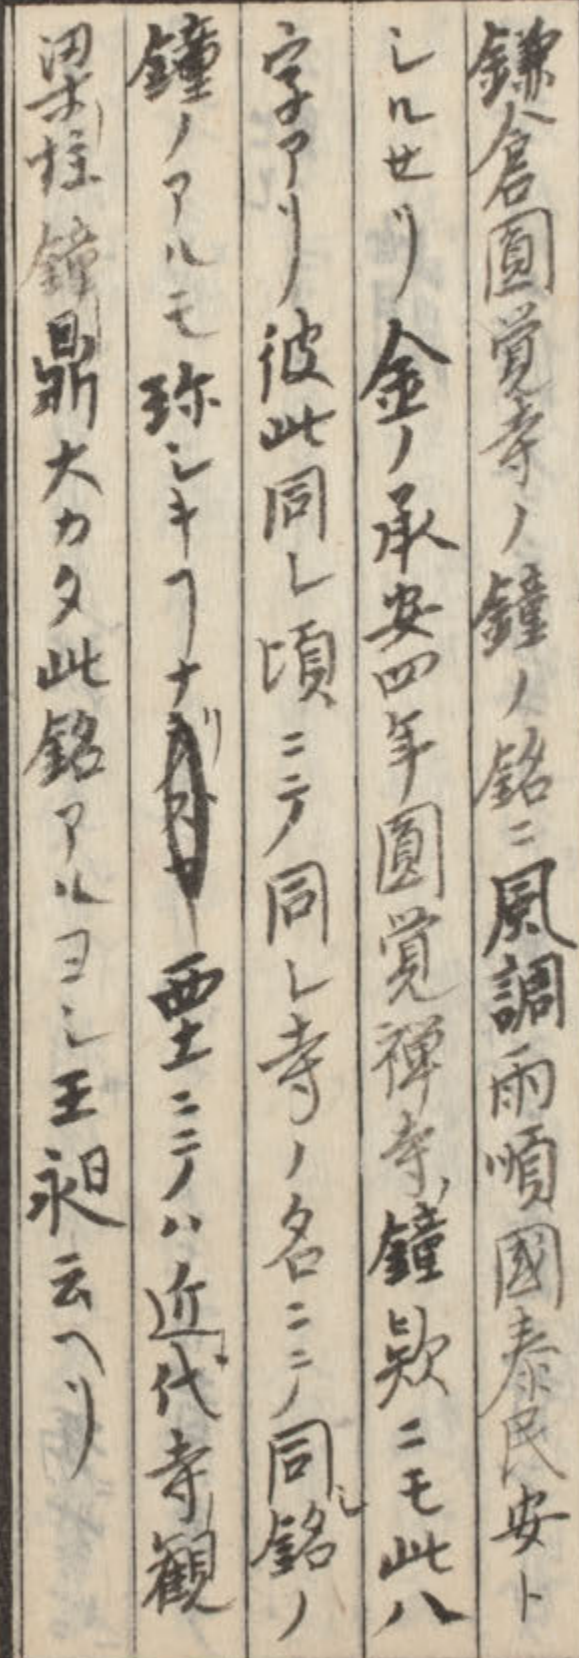 鎌倉圓覚寺ノ鐘ノ銘ニ風調雨順國泰民安ト
シルセリ金ノ承安四年圓覚禅寺鐘欵ニモ此八
字アリ彼此同シ頃ニテ同シ寺ノ名ニテ同シ銘ノ
鐘ノアルモ珎シキヿナリ西土ニテハ近代寺観
梁柱鐘鼎大カタ此銘アルヨシ王昶云ヘリ